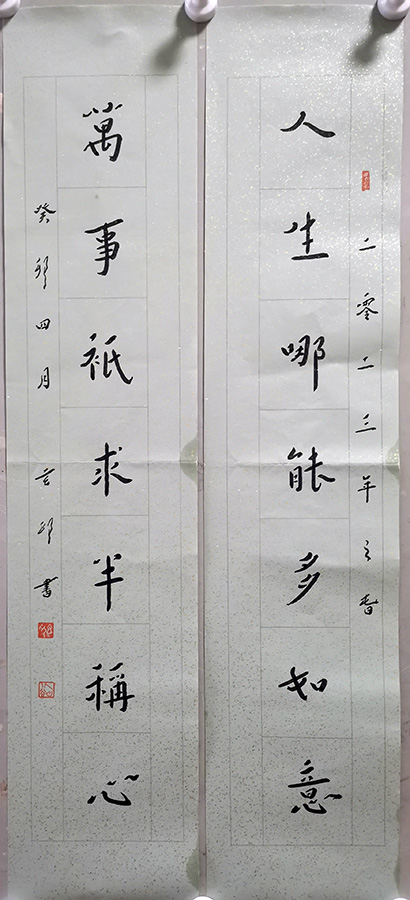 二零二三年之春
人生哪能多如意
萬事祇求半稱心
癸卯四月
書